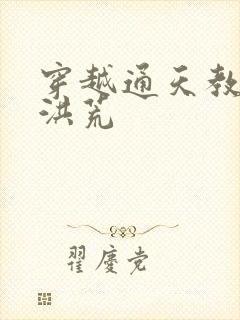 穿越通天教
洪荒
翟庆党